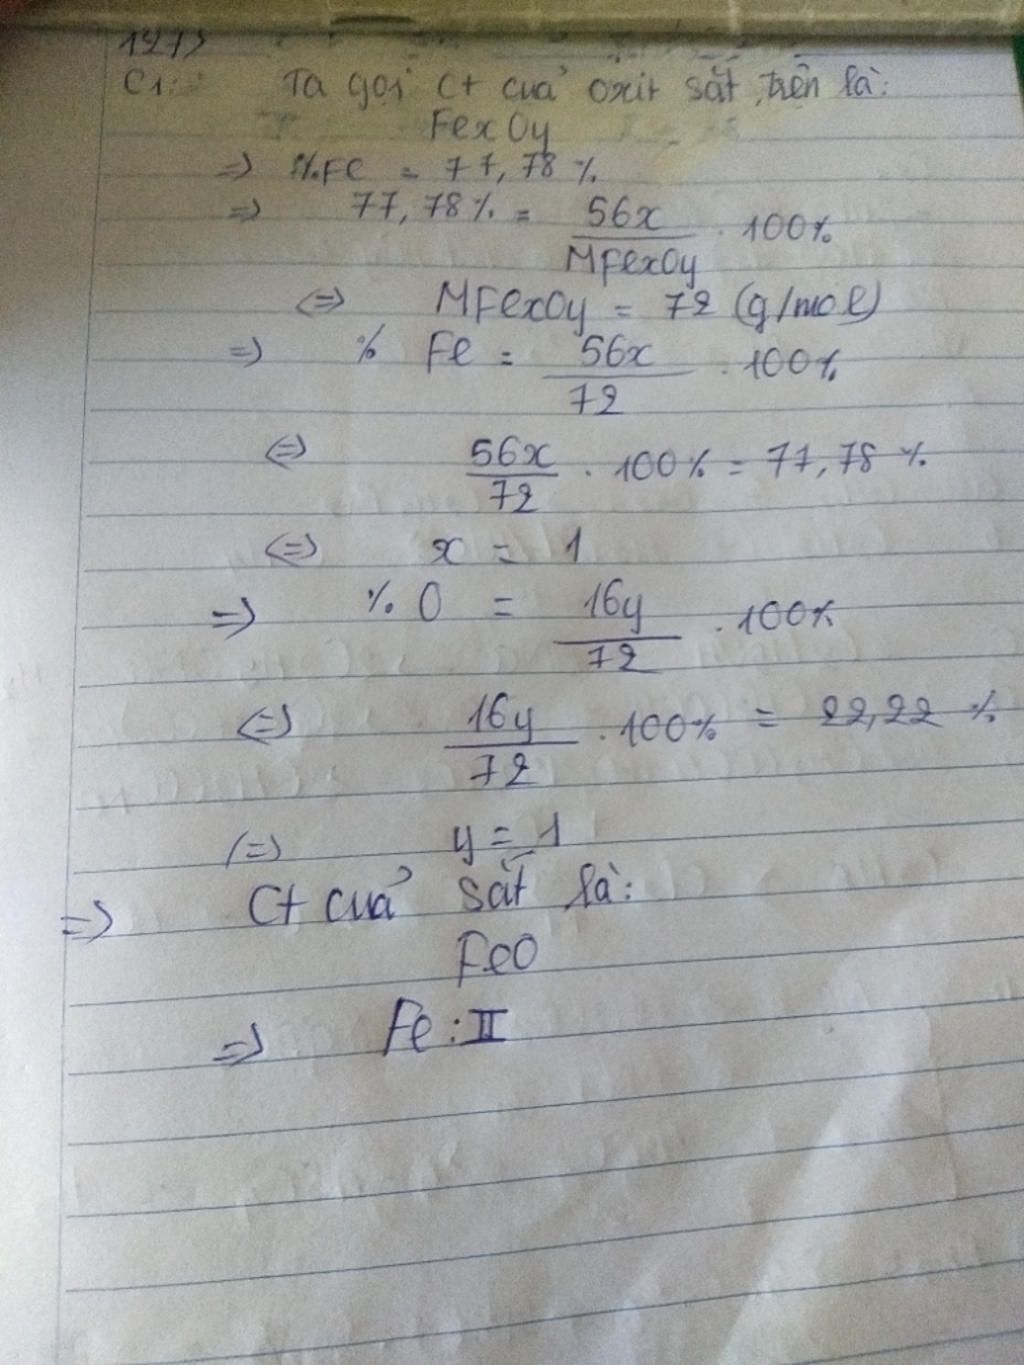 127)
C1: Ta gọi Ct của oxit sắt trên là:
FexOy
=> %Fe = 77,78 %
=> 77,78% = 56x / MFexOy . 100%
<=> MFexOy = 72 (g/mol)
=> % Fe = 56x / 72 . 100%
<=> 56x / 72 . 100% = 77,78 %
<=> x = 1
=> % O = 16y / 72 . 100%
<=> 16y / 72 . 100% = 22,22 %
(=) y = 1
=> Ct của sắt là:
FeO
=> Fe : II